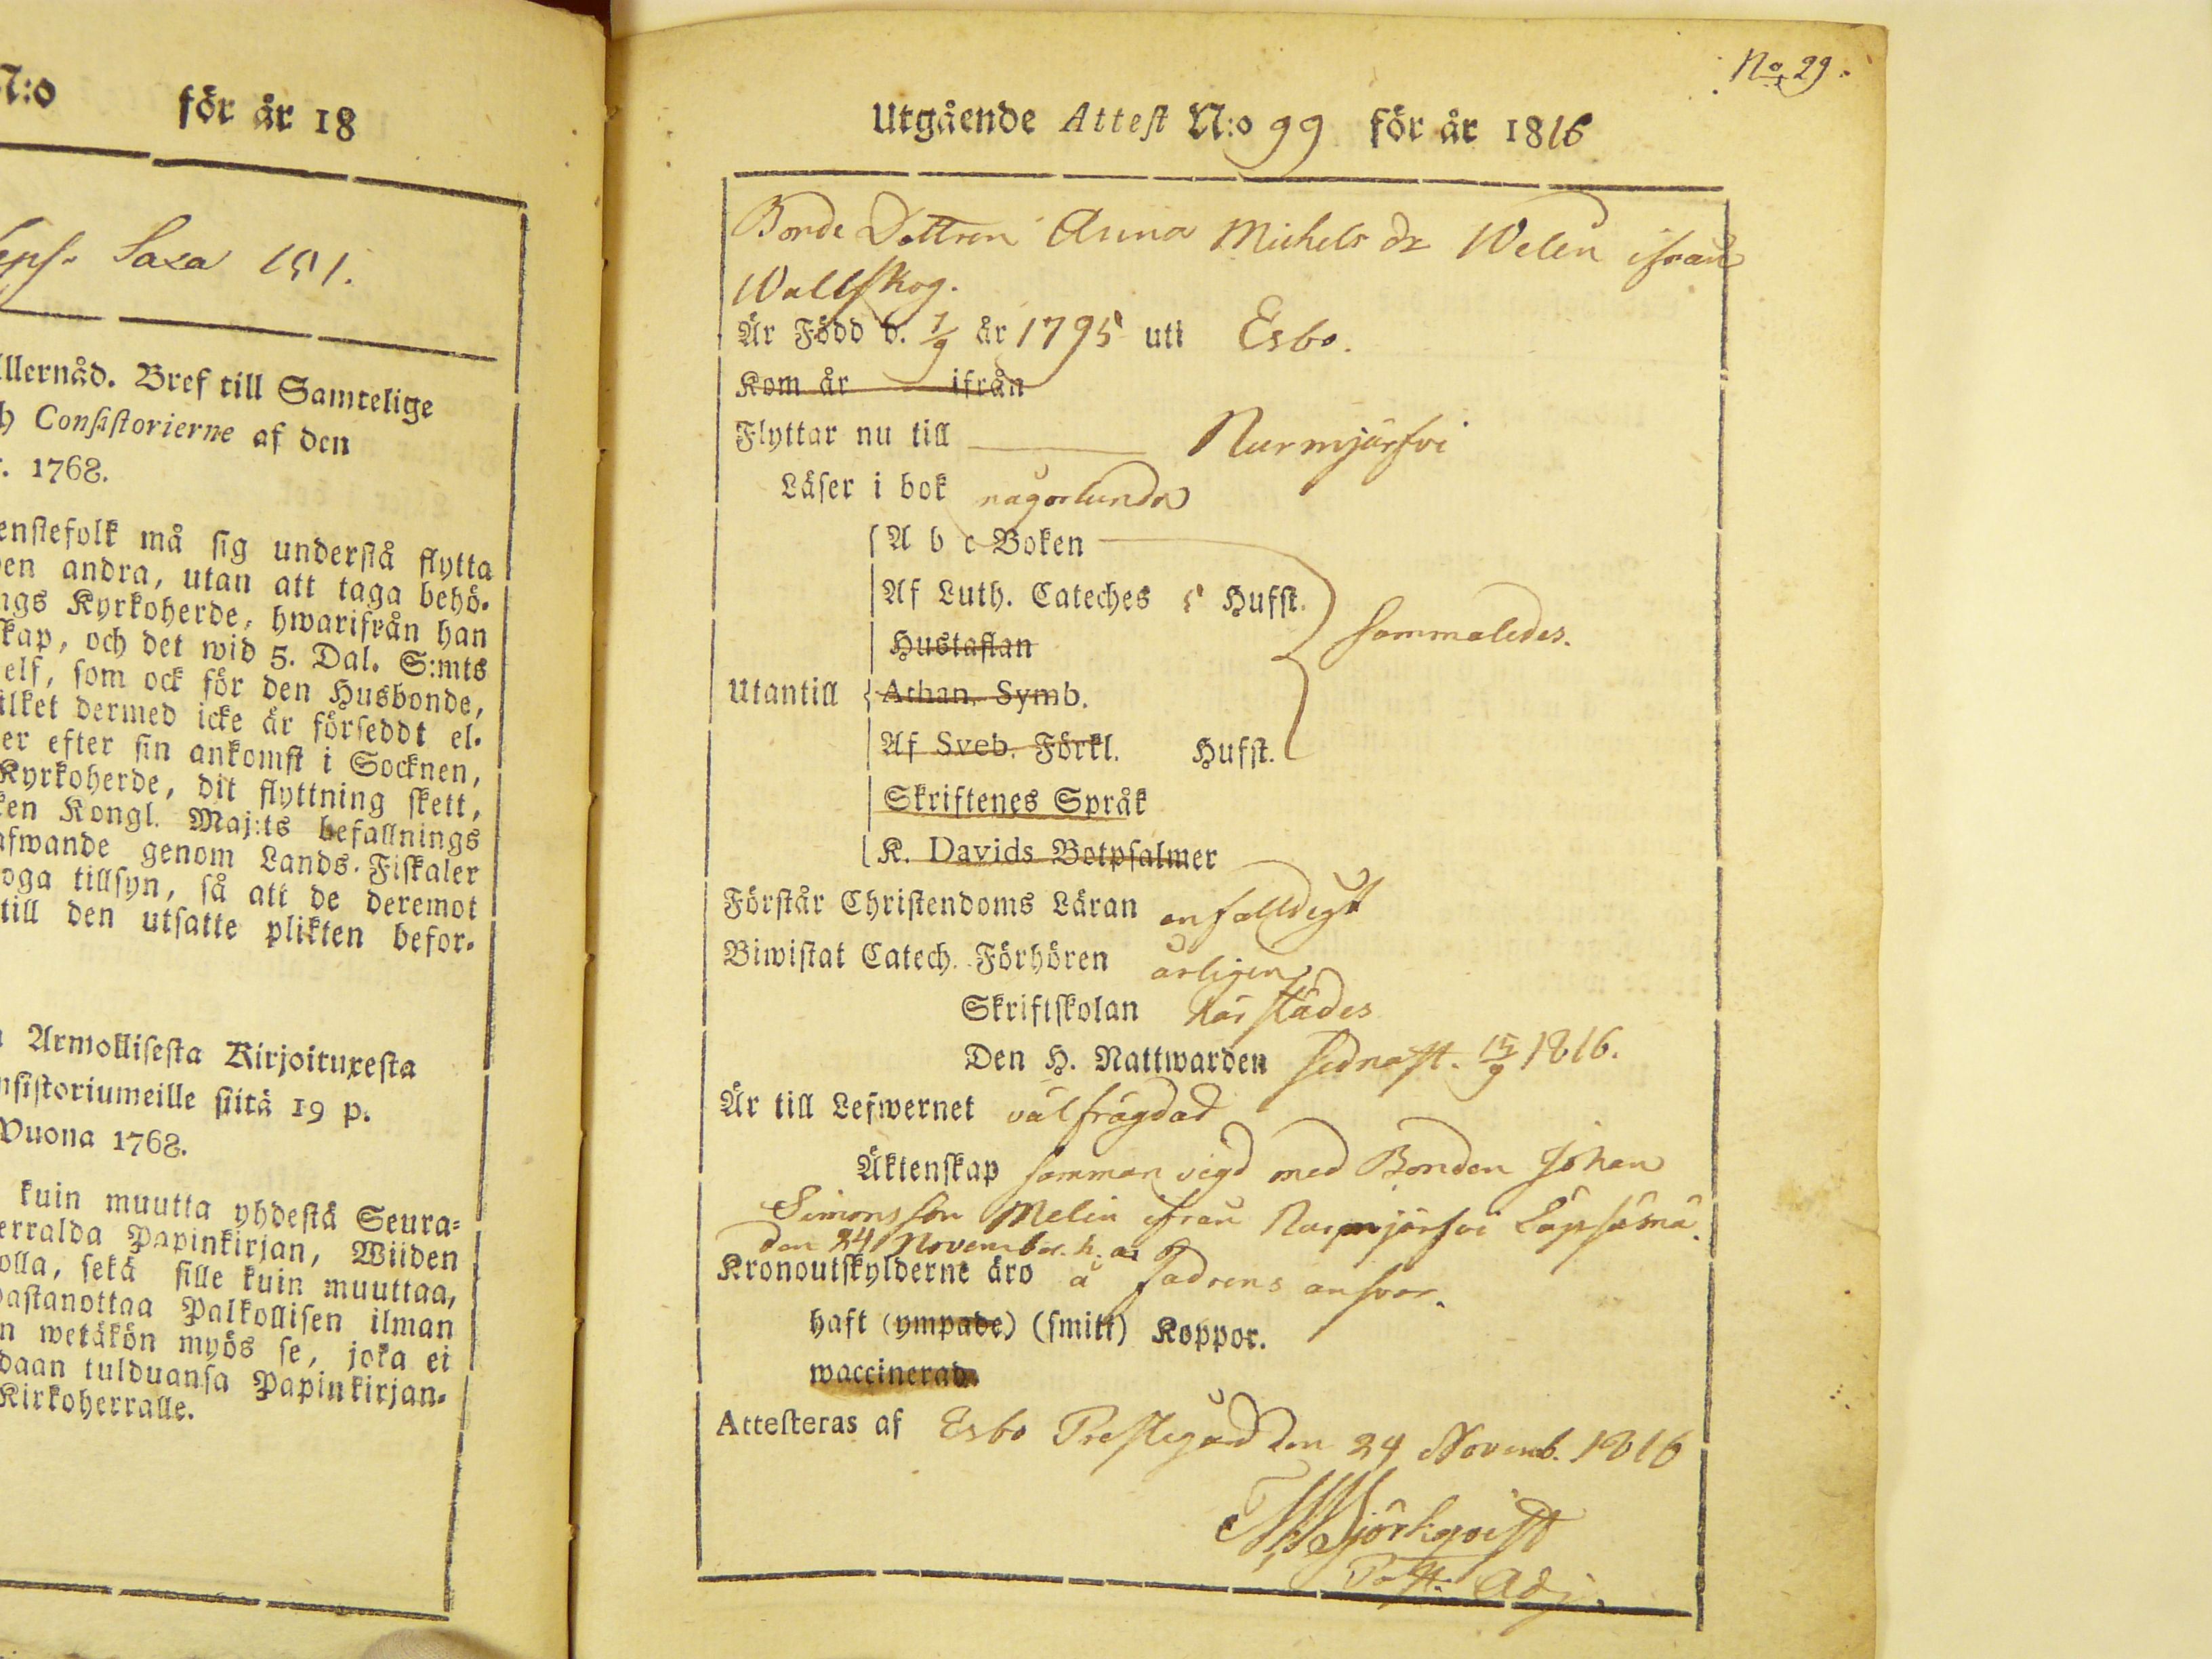 N:o för år 18
eps. Saxa 151.
Allernåd. Bref till Samtelige
h Consistorierne af den
r. 1768.
enstefolk må sig understå flytta
en andra, utan att taga behö-
ngs Kyrkoherde, hwarifrån han
kap, och det wid 5. Dal. S:mts
elf, som ock för den Husbonde,
ilket dermed icke är förseddt el-
er efter sin ankomst i Socknen,
Kyrkoherde, dit flyttning skett,
ken Kongl. Maj:ts befallnings
afwande genom Lands-Fiskaler
oga tillsyn, så att de deremot
till den utsatte plikten befor-
Armollisesta Kirjoituxesta
nsistoriumeille siitä 19 p.
Vuona 1768.
kuin muutta yhdestä Seura-
erralda Papinkirjan, Wiiden
olla, sekä sille kuin muuttaa,
astanottaa Palkollisen ilman
n wetäkön myös se, joka ei
daan tulduansa Papinkirjan-
Kirkoherralle.
No 29.
Utgående Attest N:o 99 för år 1816
Bonde Dottren Anna Michels dr Welin ifrån
Wallskog.
Är Född d. 7/9 år 1795 uti Esbo.
Kom år ifrån
Flyttar nu till Nurmjärfvi
Läser i bok någorlunda
A b c Boken
Af Luth. Cateches 5 Hufst.
Hustaflan sammaledes.
Utantill Athan. Symb.
Af Sveb. Förkl. Hufst.
Skriftenes Språk
K. Davids Botpsalmer
Förstår Christendoms Läran enfalldigt
Biwistat Catech. Förhören årligen
Skriftskolan härstädes
Den H. Nattwarden sednast. 15/9 1816.
Är till Lefwernet välfrägdad
Äktenskap samman vigd med Bonden Johan
Simonsson Melin ifrån Nurmjärfvi Lepsämä.
den 24 November h. a.
Kronoutskylderne äro å fadrens ansvar.
haft (ympade) (smitt) Koppor.
waccinerad.
Attesteras af Esbo Prestegård den 24 Novemb. 1816
Björkqvist
Past. Adj.